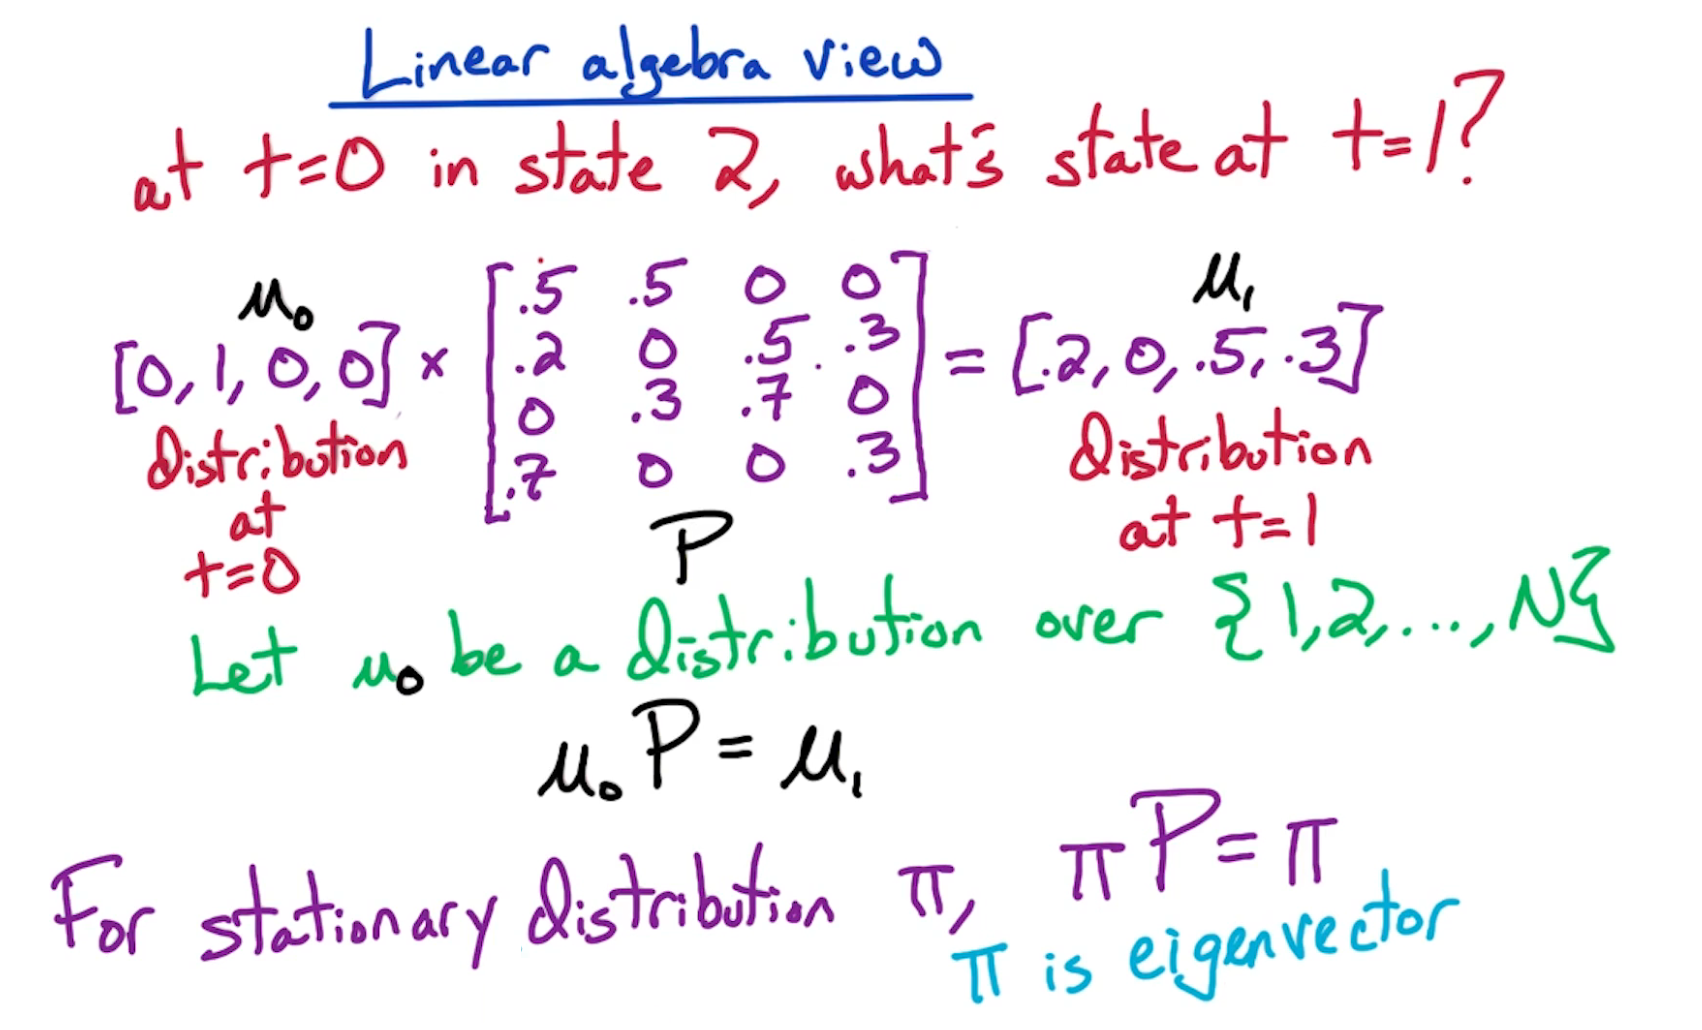 Linear algebra view
at t=0 in state 2, what's state at t=1?
μ₀ μ₁
[0, 1, 0, 0] × [.5 .5 0 0
.2 0 .5 .3
0 .3 .7 0
.7 0 0 .3] = [.2, 0, .5, .3]
distribution at t=0
P
distribution at t=1
Let μ₀ be a distribution over {1,2,...,N}
μ₀P = μ₁
For stationary distribution π, πP = π
π is eigenvector